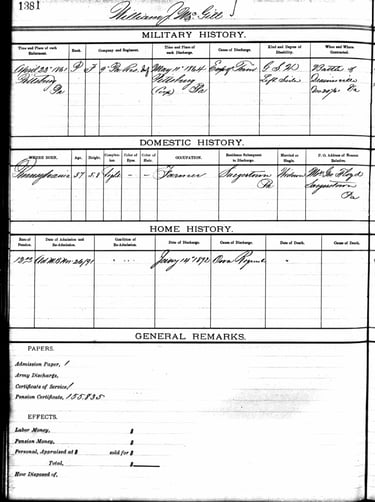 1381
William J. McGill
MILITARY HISTORY.
Time and Place of each Enlistment. Rank. Company and Regiment. Time and Place of each Discharge. Cause of Discharge. Kind and Degree of Disability. When and Where Contracted.
April 22 1861 P F 9 Pa Res. Inf May 11" 1864 Exp of Term G.S.W. Battle of
Pittsburg Pittsburg Left Side
Pa Pa Dec 20/62 Va
DOMESTIC HISTORY.
WHERE BORN. Age. Height. Complexion Color of Eyes. Color of Hair. OCCUPATION. Residence Subsequent to Discharge. Married or Single. P. O. Address of Nearest Relative.
Pennsylvania 57 5.8 Light – – Farmer Saegertown Widower Mrs Floyd
Pa Saegertown
Pa
HOME HISTORY.
Rate of Pension. Date of Admission and Re-Admission. Condition of Re-Admission. Date of Discharge. Cause of Discharge. Date of Death. Cause of Death.
Nov 26/91 Jany 14" 1892 Own Request
GENERAL REMARKS.
PAPERS.
Admission Paper, 1
Army Discharge,
Certificate of Service, 1
Pension Certificate, 155.835
EFFECTS.
Labor Money, $
Pension Money, $
Personal, Appraised at $ sold for $
Total, $
How Disposed of,